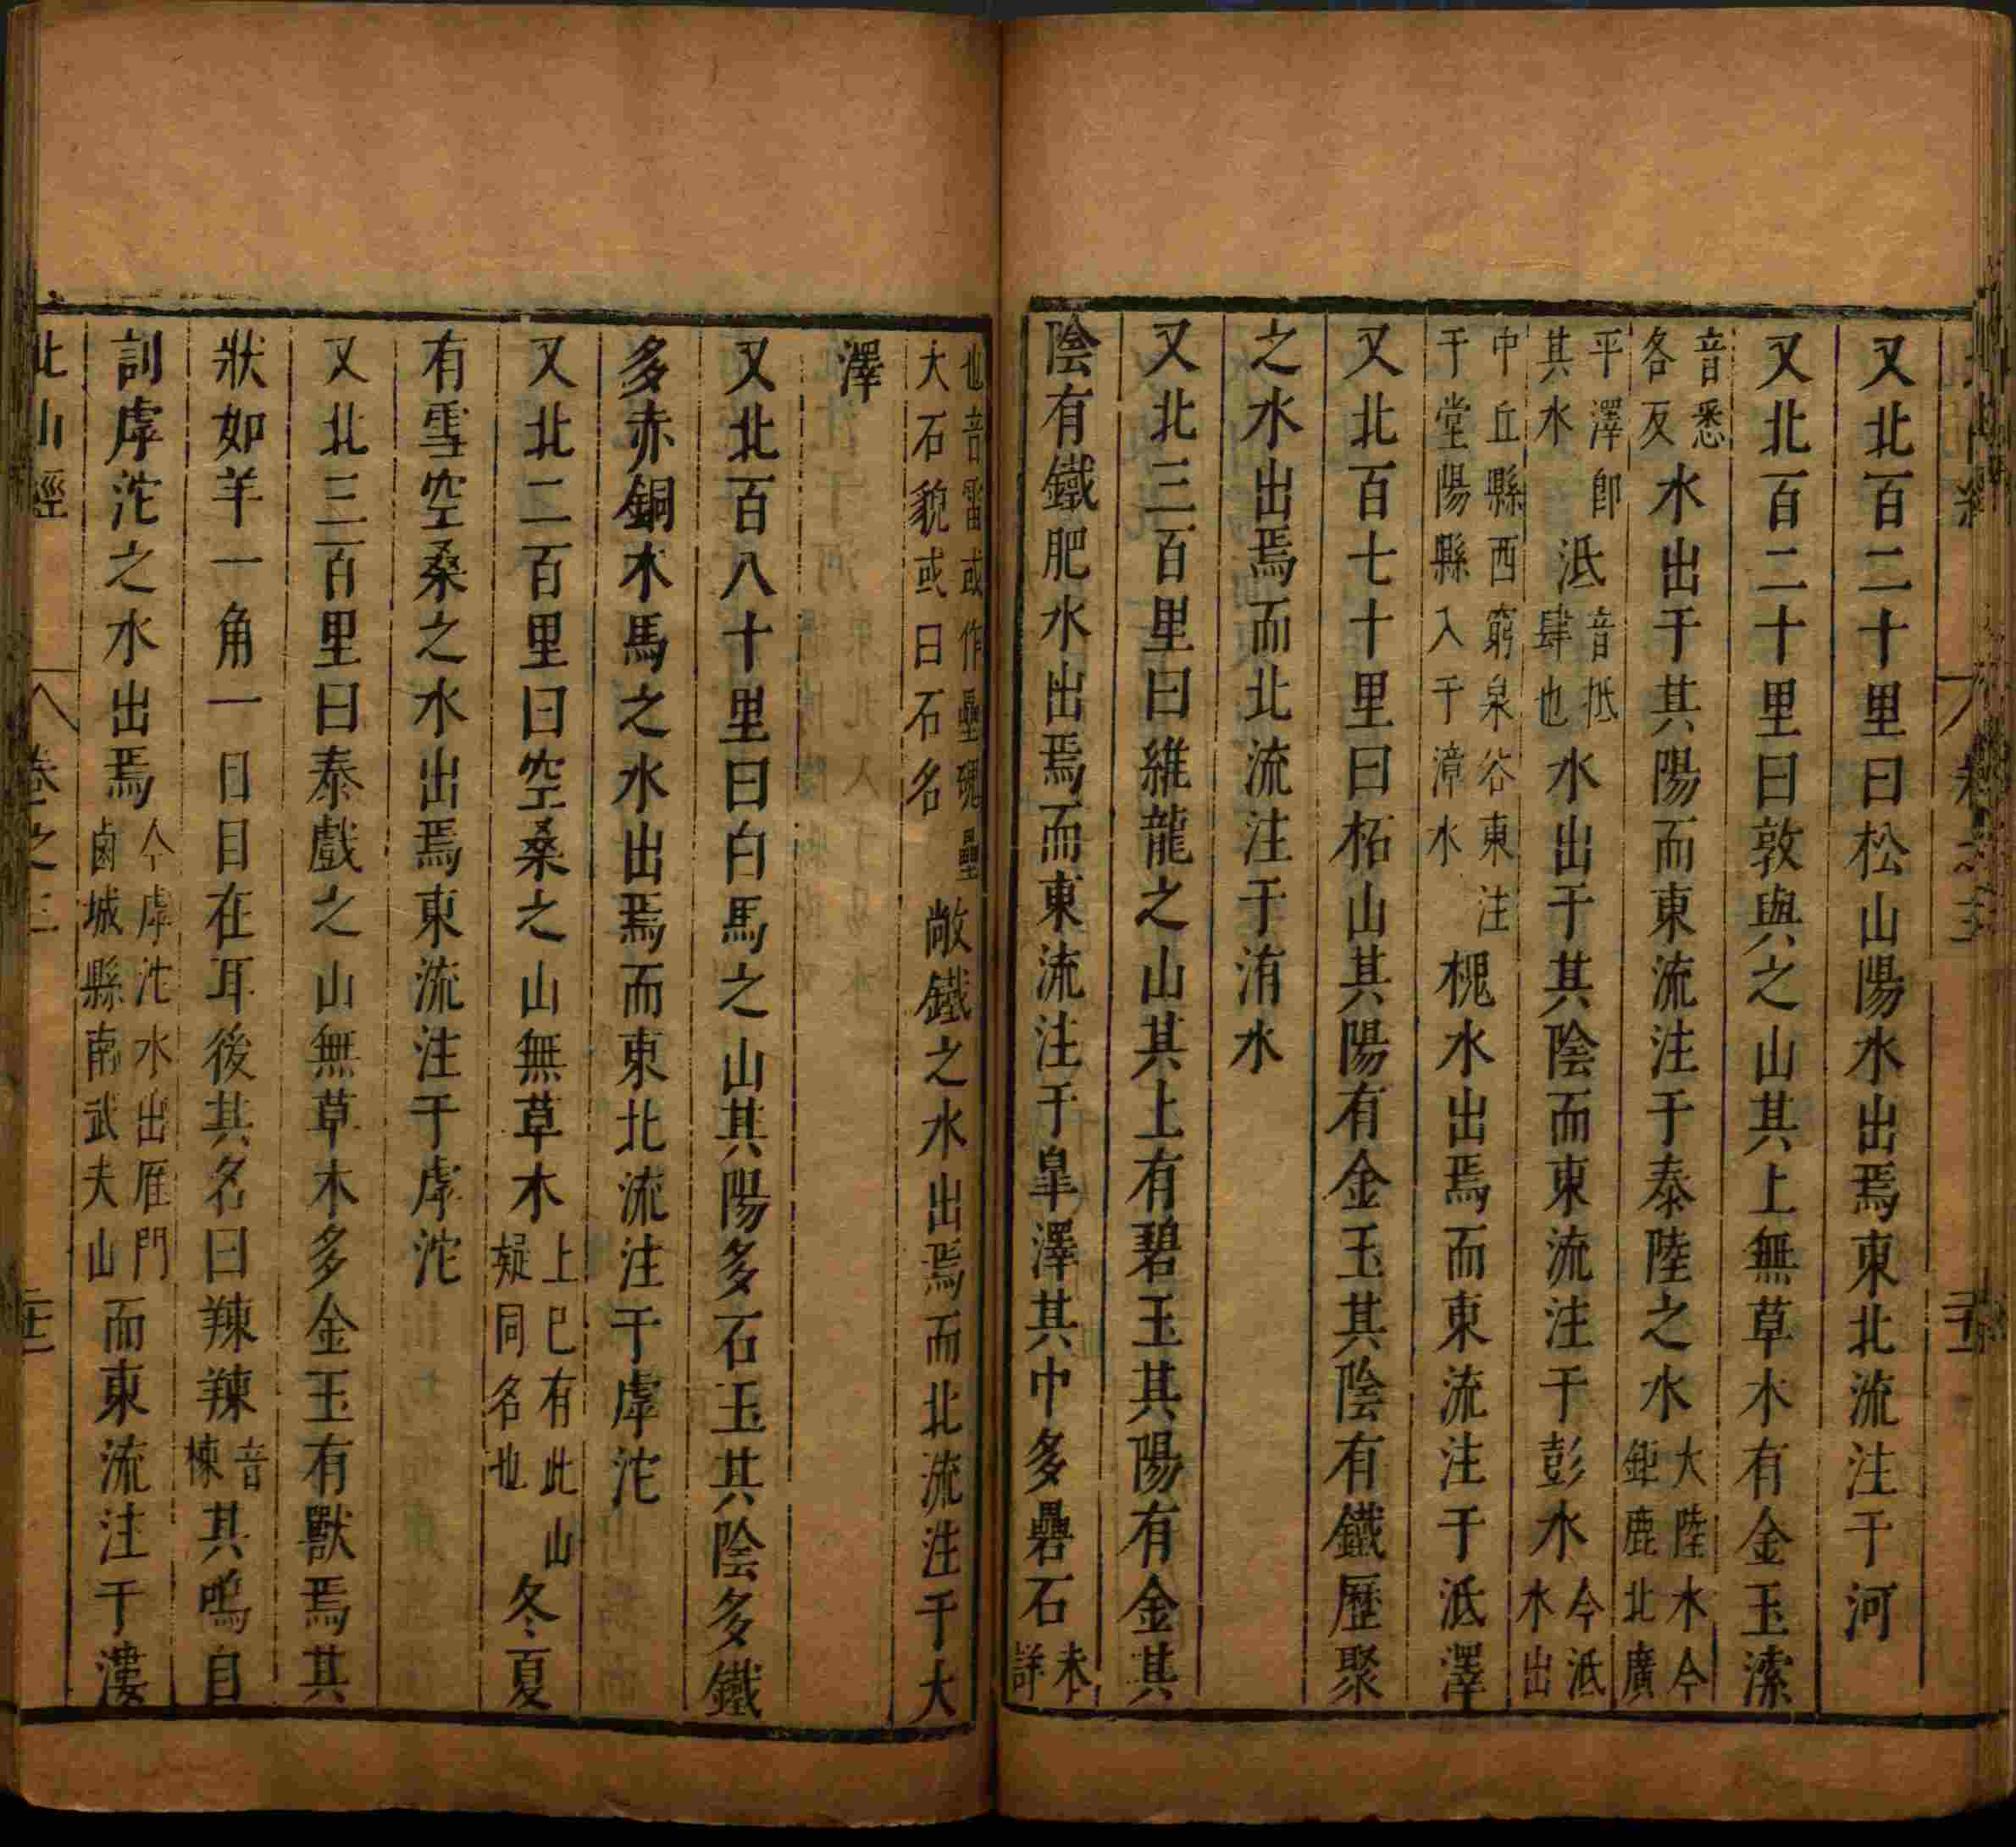 又北百二十里曰松山陽水出焉東北流注于河
又北百二十里曰敦與之山其上無草木有金玉溹
音悉各反水出于其陽而東流注于泰陸之水大陸水今鉅鹿北廣
平澤即其水泜音抵肆也水出于其陰而東流注于彭水今泜水出
中丘縣西窮泉谷東注于堂陽縣入于漳水槐水出焉而東流注于泜澤
又北百七十里曰柘山其陽有金玉其陰有鐵歷聚
之水出焉而北流注于洧水
又北三百里曰維龍之山其上有碧玉其陽有金其
陰有鐵肥水出焉而東流注于皐澤其中多礨石未詳
也音雷或作壘磈壘大石貌或曰石名敞鐵之水出焉而北流注于大
澤
又北百八十里曰白馬之山其陽多石玉其陰多鐵
多赤銅木馬之水出焉而東北流注于虖沱
又北二百里曰空桑之山無草木上已有此山疑同名也冬夏
有雪空桑之水出焉東流注于虖沱
又北三百里曰泰戲之山無草木多金玉有獸焉其
狀如羊一角一目目在耳後其名曰辣辣音棟其鳴自
訓虖沱之水出焉今虖沱水出雁門鹵城縣南武夫山而東流注于漊
北山經 卷之三